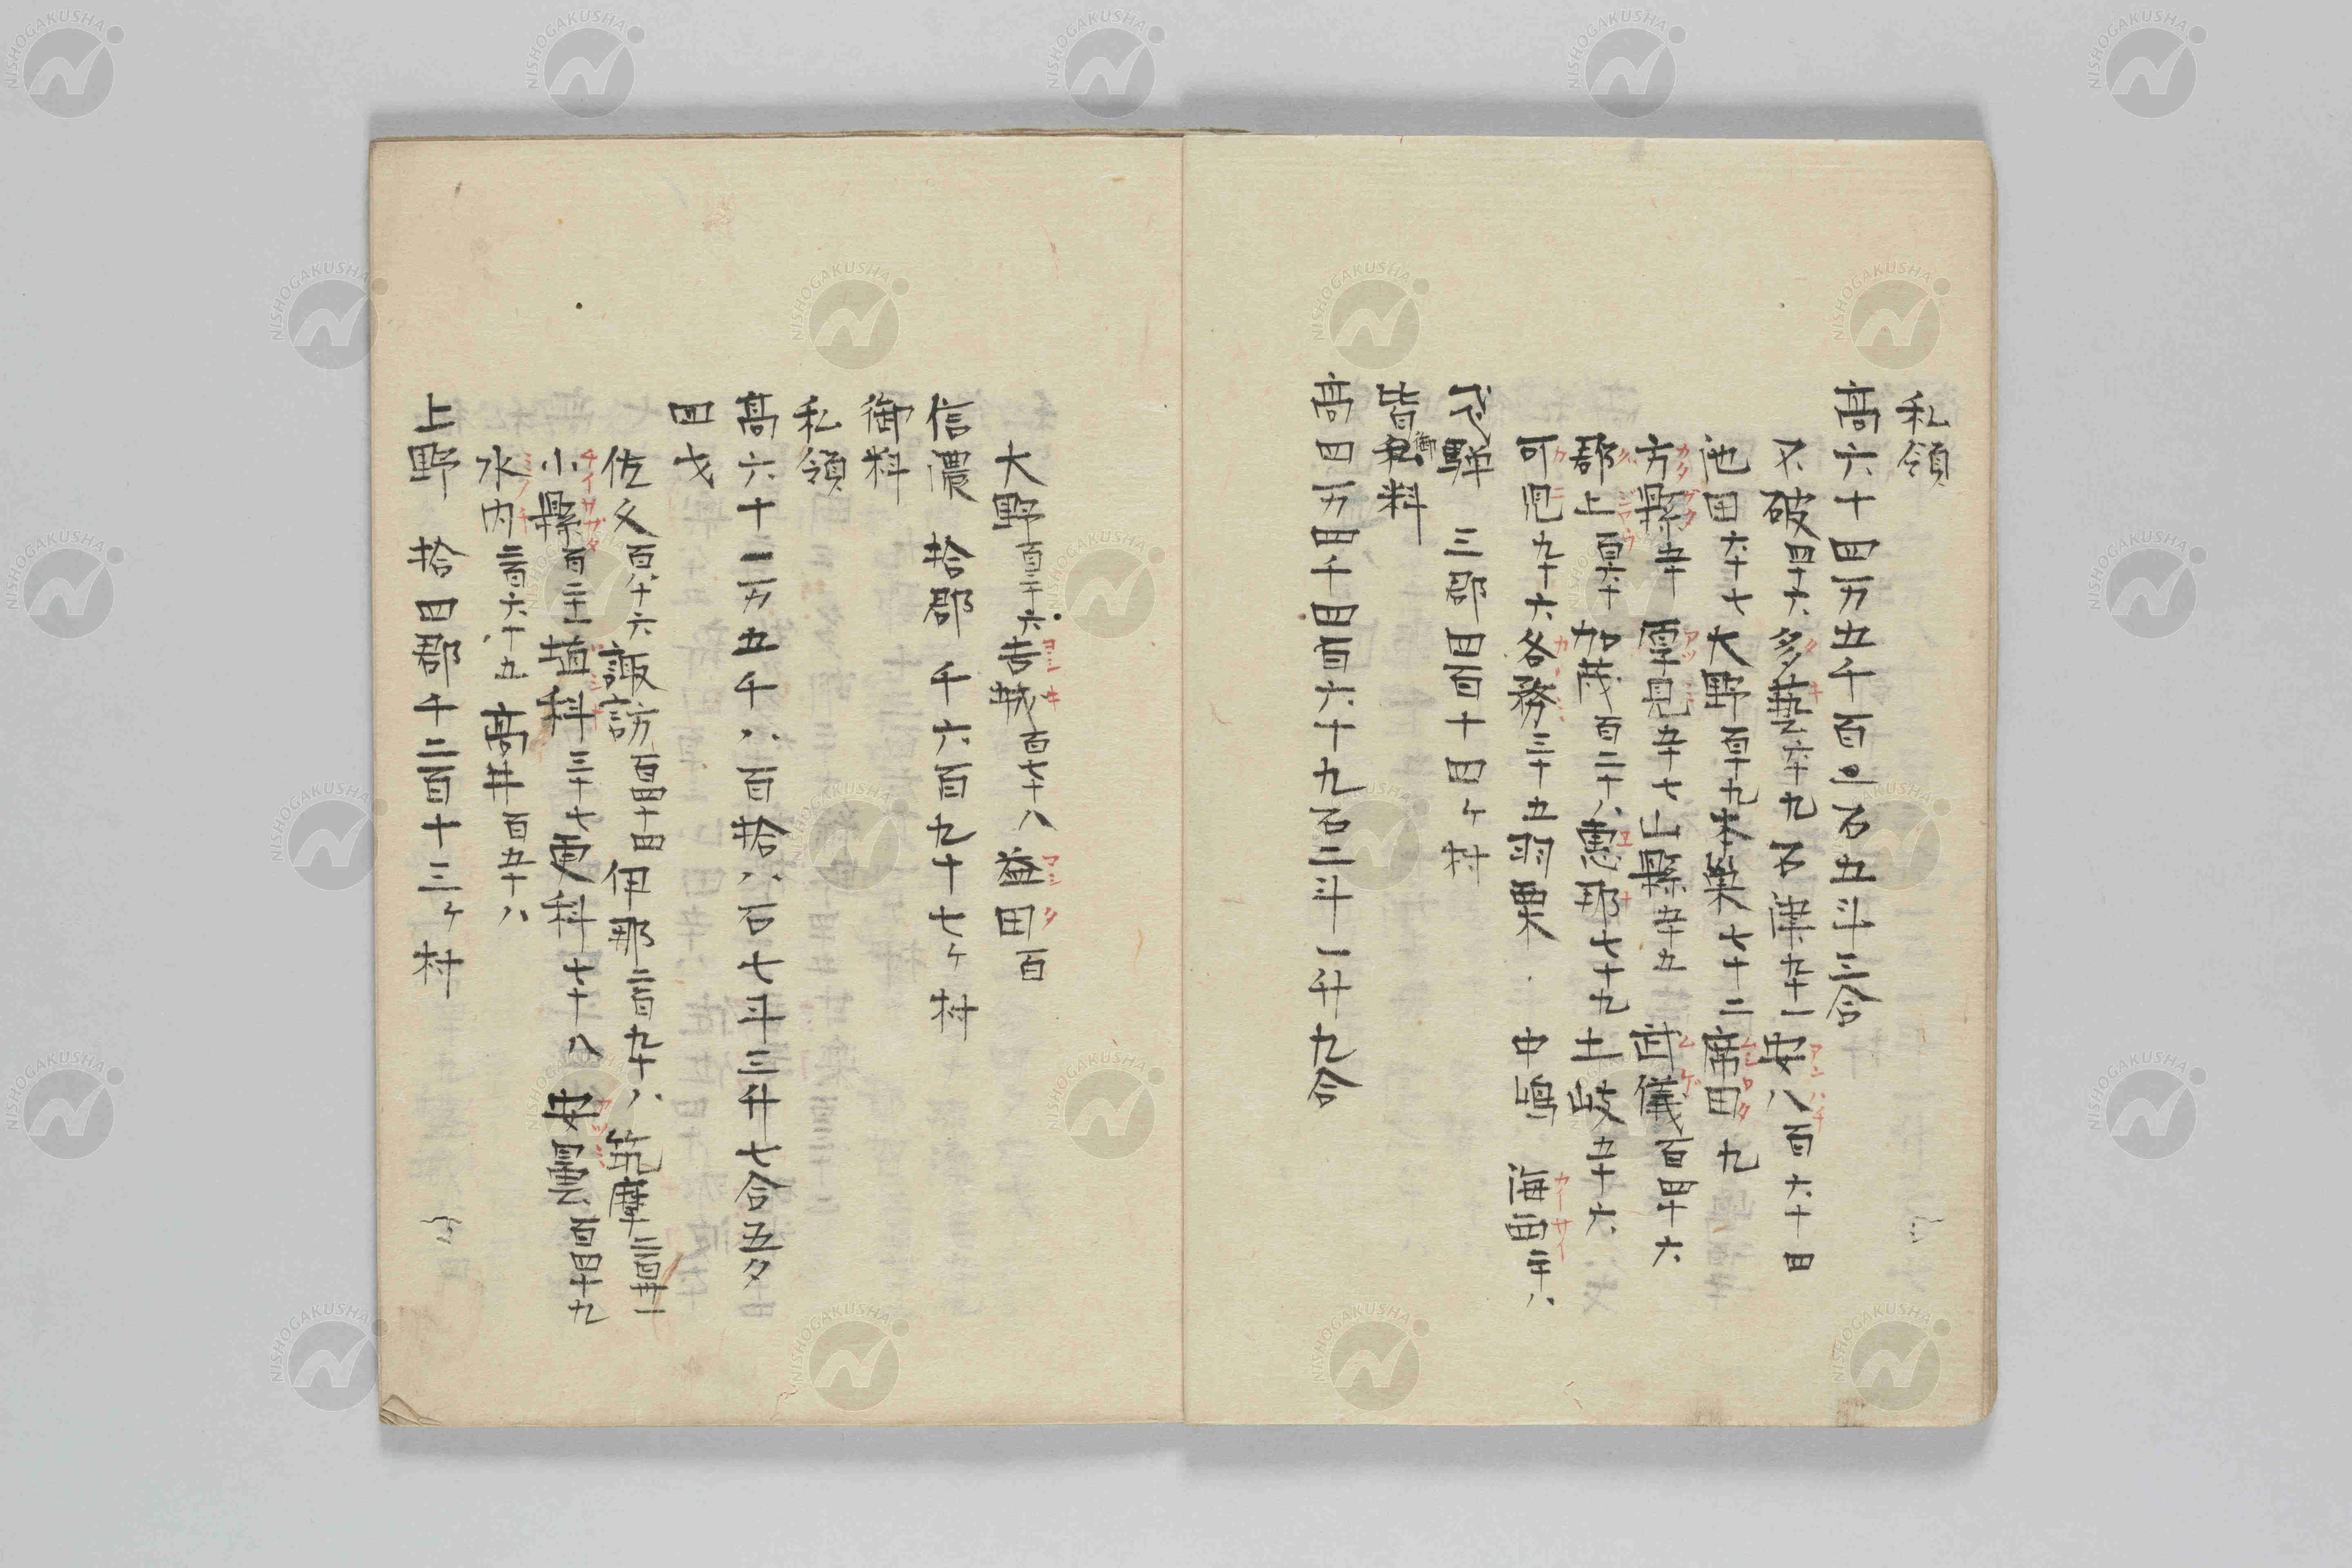 私領
高六十四万五千百二石五斗三合
不破四十六多藝六十九石津九十一安八百六十四
池田六十七大野百十九本巣七十二席田九
方縣五十厚見五十七山縣五十五武儀百四十六
郡上百六十加茂百二十八惠那七十九土岐五十六
可児九十六各務三十五羽栗中嶋海西二十八
飛騨　三郡四百十四ケ村
皆御料
高四万四千四百六十九石二斗一升九合
大野百三十六吉城百七十八益田百
信濃　拾郡　千六百九十七ケ村
御料
私領
高六十一万五千八百拾八石七斗三升七合五夕
四才
佐久百八十六諏訪百四十四伊那二百九十八筑摩二百卅一
小縣百二十一埴科三十七更科七十八安曇百四十九
水内二百六十五高井百五十八
上野　拾四郡千二百十三ケ村
NISHOGAKUSHA